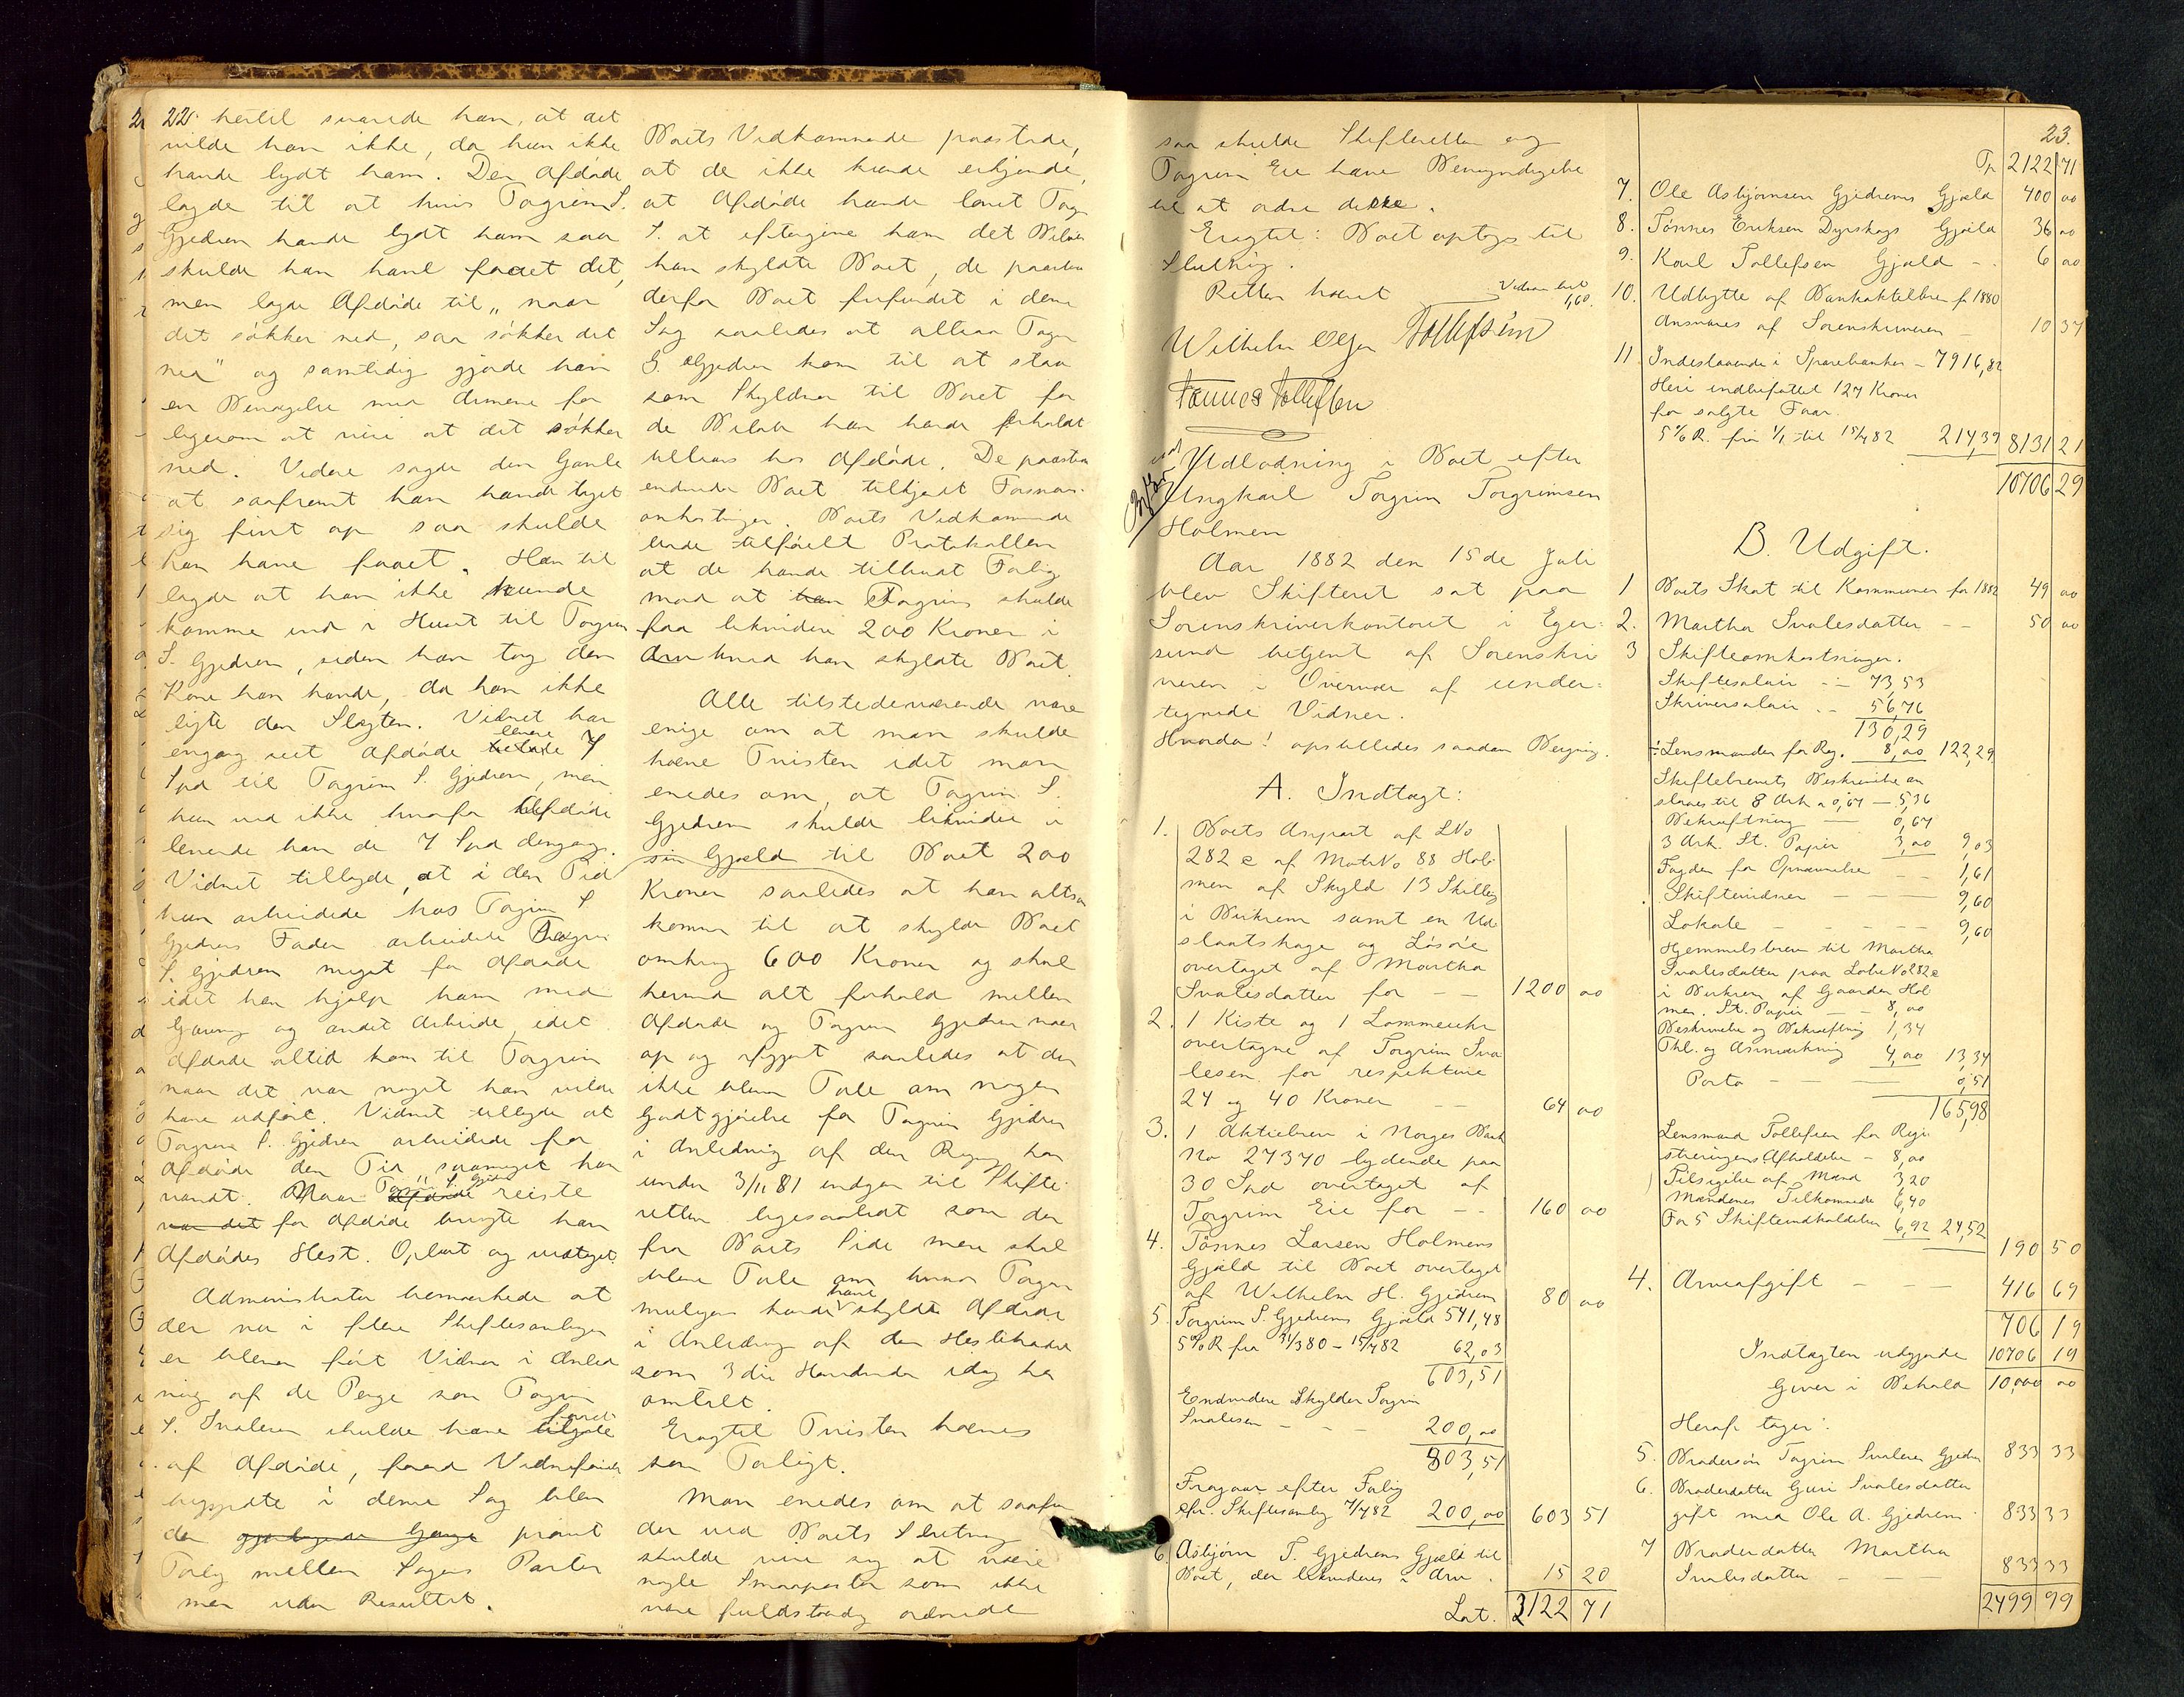 22. hertil svarede han, at det
vilde han ikke, da han ikke
havde lydt ham. Den Afdøde
lagde til at hvis Torgrim S.
Gjedrem havde lydt ham saa
skulde han havt faaet det,
men lagde Afdøde til „naar
det søkker ned, saa søkker det
ned" og samtidig gjorde han
en Bevægelse med Armene for
ligesom at vise at det søkker
ned. Videre sagde den Gamle
at saafremt han havde taget
sig pent op saa skulde
han have faaet. Han til
lagde at han ikke kunde
komme ind i Huset til Torgrim
S. Gjedrem, siden han tog den
Kone han havde, da han ikke
ligte den Slægten. Vidnet har
engang seet Afdøde levere 7
Spd til Torgrim S. Gjedrem, men
han ved ikke hvorfor Afdøde
leverede ham de 7 Spd dengang.
Vidnet tillagde, at i den Tid
han arbeidede hos Torgrim S
Gjedrems Fader arbeidede Torgrim
S. Gjedrem meget for Afdøde
idet han hjalp ham med
Gaarding og andet Arbeide, idet
Afdøde altid kom til Torgrim
naar det var noget han vilde
have udført. Vidnet tillagde at
Torgrim S. Gjedrem arbeidede for
Afdøde den Tid, saameget han
vandt. Naar Torgrim S. Gjedrem reiste
var det for Afdøde brugte han
Afdødes Hest. Oplæst og vedtaget.
Administrator bemærkede at
der nu i flere Skiftesamlinger
er bleven ført Vidner i Anled
ning af de Penge som Torgrim
S. Svalesen skulde have laant
af Afdøde, forend Vidneførsel
begyndte i denne Sag blev
der prøvet
Forlig mellem Sagens Parter
men uden Resultat.
Boets Vedkommende paastode,
at de ikke kunde erkjende,
at Afdøde havde lovet Torg.
S. at eftergive ham det Beløb
han skyldte Boet, de paastod
derfor Boet frifundet i denne
Sag saaledes at altsaa Torgr
S. Gjedrem kom til at staa
som Skyldner til Boet for
de Beløb han havde forholdt
tillaans hos Afdøde. De paastod
endvidere Boet tilkjendt Forsvars-
omkostninger. Boets Vedkommende
lode tilført Protokollen
at de havde tilbudt Forlig
mod at Torgrim skulde
faa likvidere 200 Kroner i
Arv hvad han skyldte Boet.
Alle tilstedeværende vare
enige om at man skulde
hæve Tvisten idet man
enedes om, at Torgrim S.
Gjedrem skulde likvidere i
sin Gjæld til Boet 200
Kroner saaledes at han altsaa
kommer til at skylde Boet
omkring 600 Kroner og skal
hermed alt forhold mellem
Afdøde og Torgrim Gjedrem være
op og afgjort saaledes at der
ikke bliver Tale om nogen
Godtgjørelse for Torgrim Gjedrem
i Anledning af den Regning han
under 3/11 81 indgav til Skifte
retten ligesaalidt som der
fra Boets Side mere skal
blive Tale om hvad Torgrim
muligens havde have skyldt Afdøde
i Anledning af den Hestehandel
som 3die Hovedvidne idag har
omtalt.
Eragtet Tvisten hæves
som Forligt.
Man enedes om at saafremt
der ved Boets Slutning
skulde vise sig at være
nogle Smaaposter som ikke
vare fuldstændig ordnede
saa skulde Skifteretten og
Torgrim Eie have Bemyndigelse
til at ordne dette.
Eragtet: Boet optages til
Slutning.
Retten hævet
Vidnerne bet.
1,60.
Wilhelm Eger Tollefsen
Tønnes Tollefsen
Udlodning i Boet efter
Ungkarl Torgrim Torgrimsen
Holmen
Aar 1882 den 15de Juli
blev Skifteret sat paa
Sorenskriverkontoret i Eger-
sund betjent af Sorenskri
veren i Overvær af under-
tegnede Vidner.
Hvorda! opstilledes saadan Beregning.
A. Indtægt:
1. Boets Anpart af LNo
282 e af MatrNo 88 Hol-
men af Skyld 13 Skilling
i Birkrem samt en Ud
slaatshage og Løsøre
overtaget af Martha
Svalesdatter for - - 1200 00
2. 1 Kiste og 1 Lommeuhr
overtagne af Torgrim Sva
lesen for respektive
24 og 40 Kroner - - 64 00
3. 1 Aktiebrev i Norges Bank
No 27370 lydende paa
30 Spd overtaget af
Torgrim Eie for - - 160 00
4. Tønnes Larsen Holmens
Gjæld til Boet overtaget
af Wilhelm H. Gjedrem 80 00
5. Torgrim S. Gjedrems Gjæld 541,48
5% R. fra 31/3 80 - 15/7 82 62,03
603,51
Endvidere skylder Torgrim
Svalesen - - 200,00
803,51
Fragaar efter Forlig
efr. Skiftesamling 7/7 82 200,00 603 51
6. Asbjørn T. Gjedrems Gjæld til
Boet, der likvideres i Arv. 15 20
Lat. 2122 71
23.
Tr 2122 71
7. Ole Asbjørnsen Gjedrems Gjæld 400 00
8. Tønnes Eriksen Dyrskogs Gjæld 36 00
9. Karl Tollefsen Gjæld - 6 00
10. Udbytte af Bankaktiebrev for 1880
Ansvares af Sorenskriveren - 10 37
11. Indestaaende i Sparebanken - 7916,82
Heri indbefattet 127 Kroner
for solgte Faar.
5% R. fra 1/1 til 15/7 82 214,39 8131 21
10706 29
B. Udgift.
1 Boets Skat til Kommunen for 1882 49 00
2. Martha Svalesdatter - - 50 00
3 Skifteomkostninger.
Skiftesalair - 73,53
Skriversalair - 56,76
130,29
÷ Lensmanden for Reg. 8,00 122,29
Skiftebrevets Beskrivelse an
slaaes til 8 Ark a 0,67 - 5,36
Bekræftning - 0,67
3 Ark. St. Papir 3,00 9,03
Fogden for Opnævnelse - - 1,61
Skiftevidner - - - 9,60
Lokale - - - - 9,60
Hjemmelsbrev til Martha
Svalesdatter paa LøbeNo 282 e
i Birkrem af Gaarden Hol
men. St. Papir - - 8,00
Beskrivelse og Bekræftning 1,34
Thl. og Anmærkning 4,00 13,34
Porto - - - 0,51
165,98
Lensmand Tollefsen for Regi
streringens Afholdelse - 8,00
Tilsigelse af Mænd 3,20
Mændenes Tilkommende 6,40
For 5 Skifteindkaldelser 6,92 24,52
190 50
4. Arveafgift - - 416 69
706 19
Indtægten udgjorde 10706 19
Giver i Behold 10,000 00
Heraf tager:
5. Brodersøn Torgrim Svalesen Gjedrem 833 33
6. Broderdatter Guri Svalesdatter
gift med Ole A. Gjedrem 833 33
7 Broderdatter Martha
Svalesdatter - - 833 33
2499 99